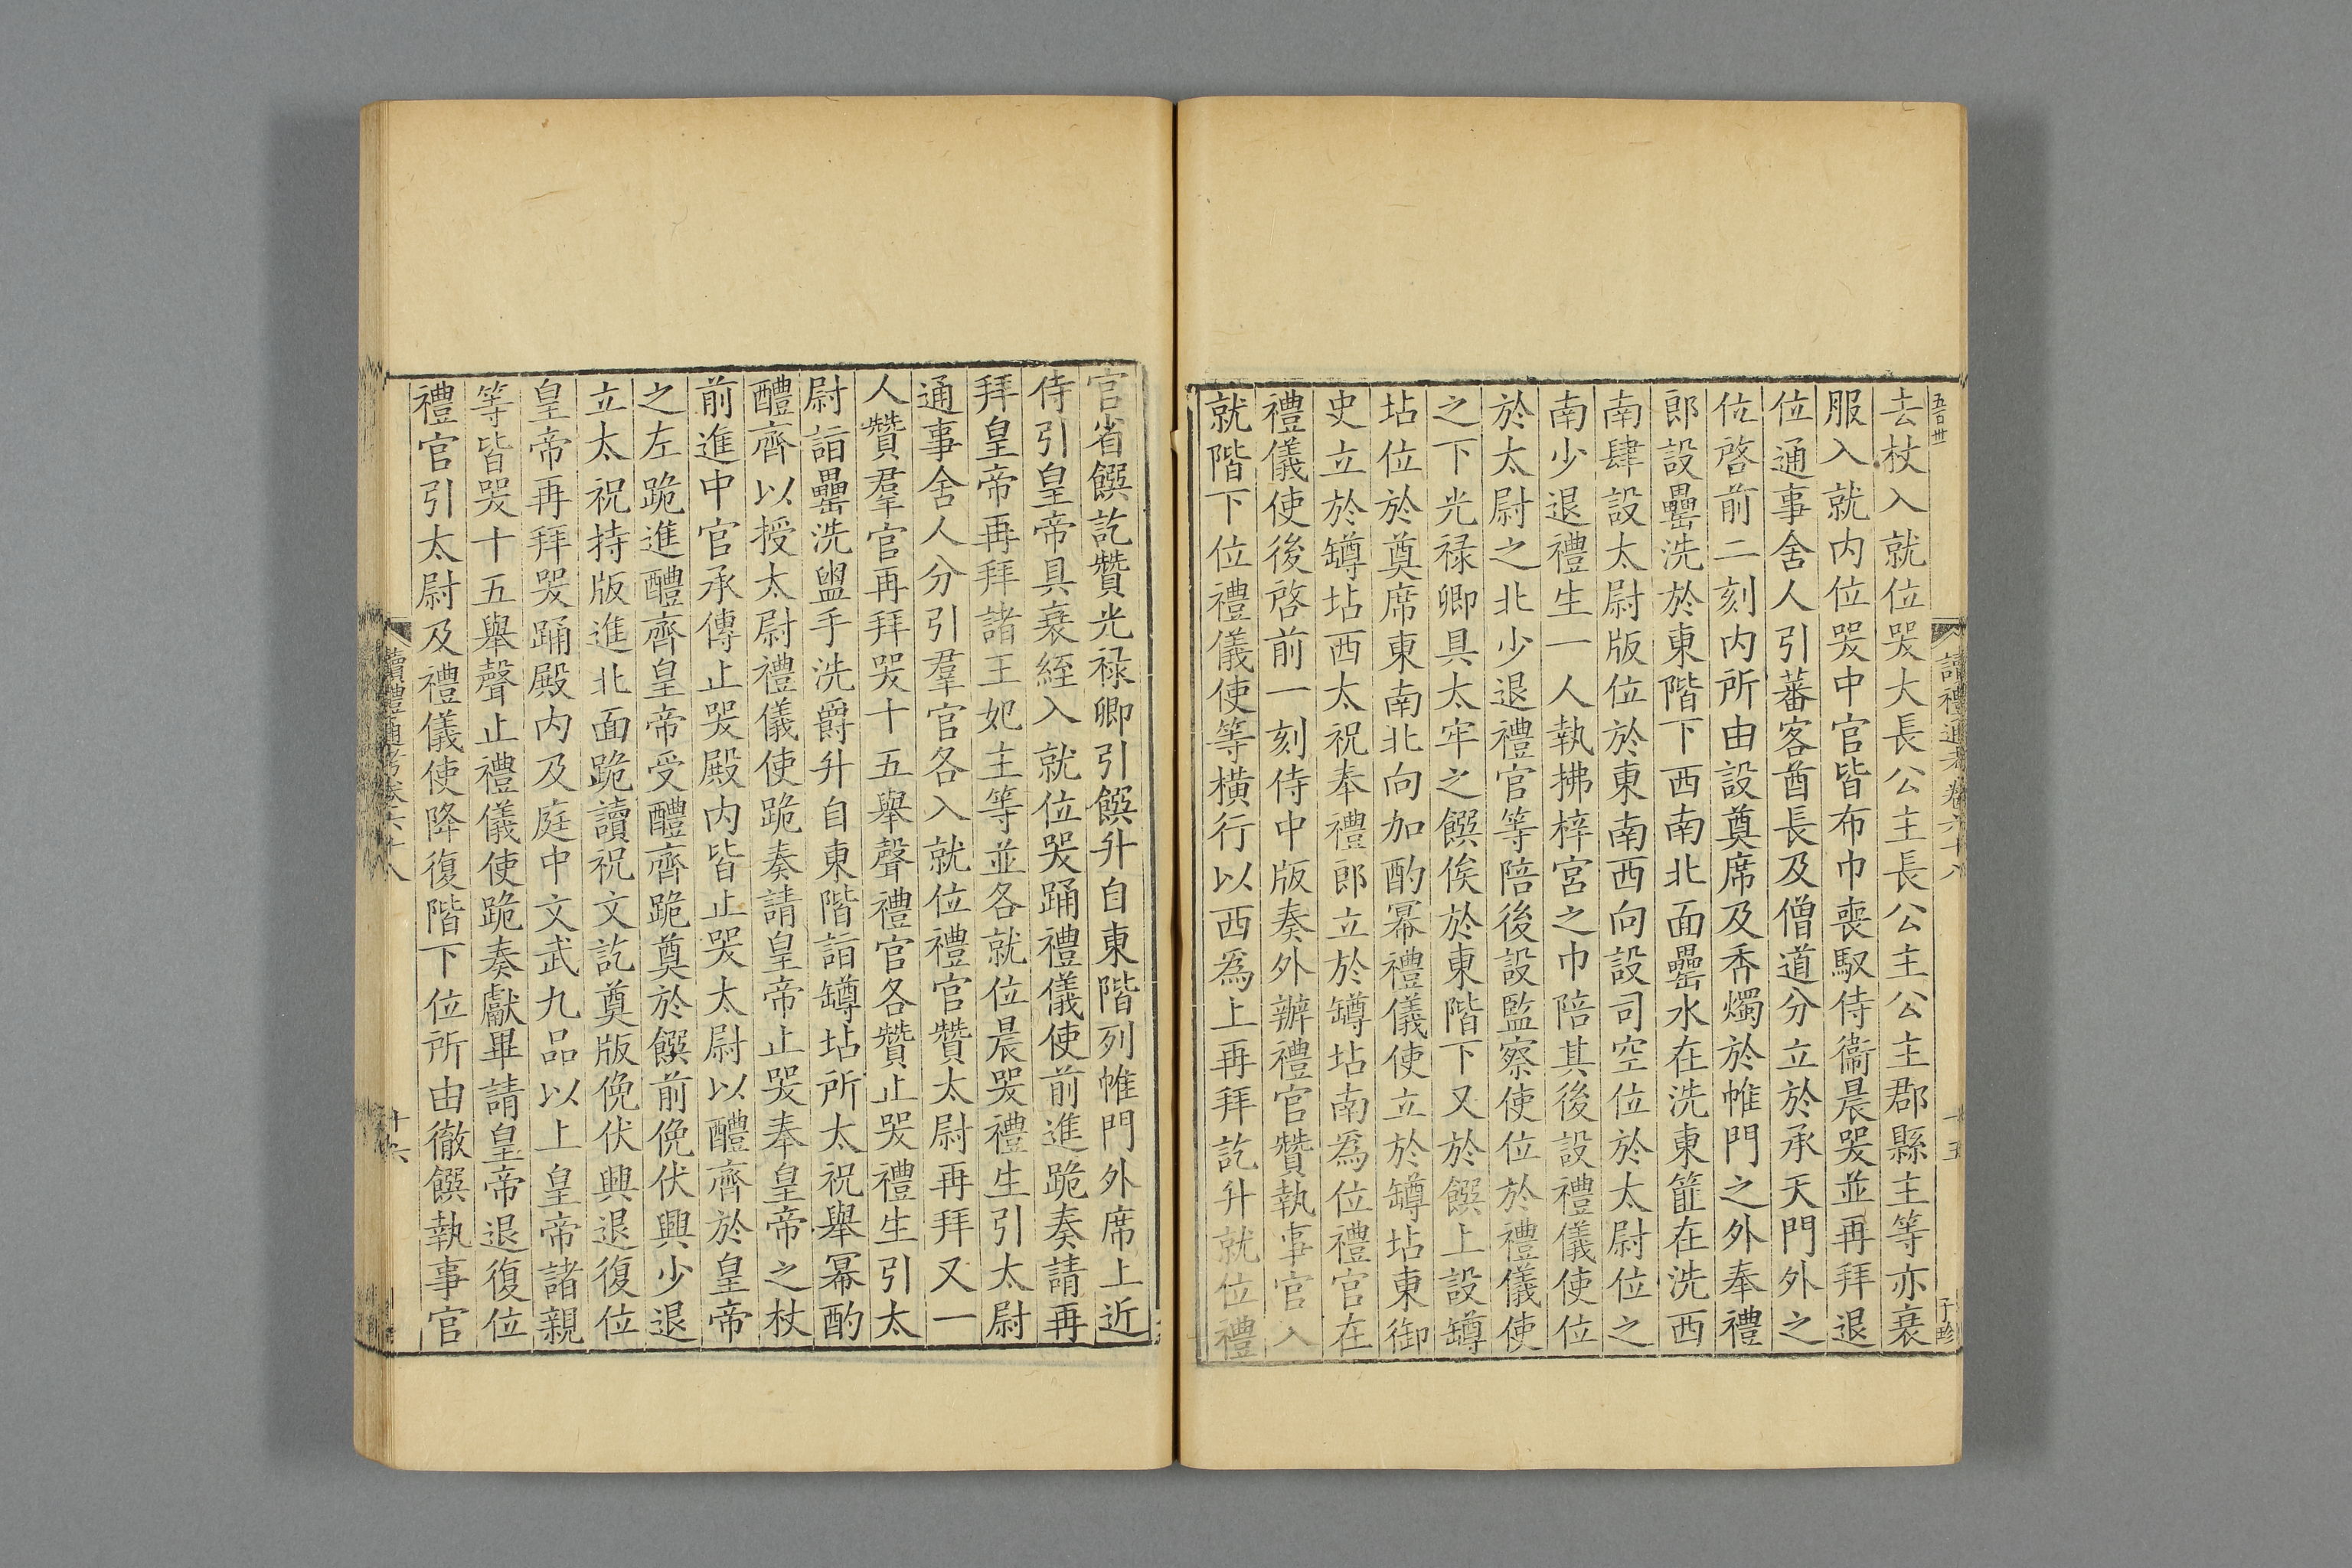 五百卅
讀禮通考卷六十八
十五
于珍
去杖入就位哭大長公主長公主公主郡縣主等亦衰
服入就内位哭中官皆布巾喪馭侍衞晨哭並再拜退
位通事舍人引蕃客酋長及僧道分立於承天門外之
位啓前二刻内所由設奠席及香燭於帷門之外奉禮
郎設罍洗於東階下西南北面罍水在洗東篚在洗西
南肆設太尉版位於東南西向設司空位於太尉位之
南少退禮生一人執拂梓宮之巾陪其後設禮儀使位
於太尉之北少退禮官等陪後設監察使位於禮儀使
之下光禄卿具太牢之饌俟於東階下又於饌上設罇
坫位於奠席東南北向加酌冪禮儀使立於罇坫東御
史立於罇坫西太祝奉禮郎立於罇坫南為位禮官在
禮儀使後啓前一刻侍中版奏外辦禮官贊執事官入
就階下位禮儀使等横行以西為上再拜訖升就位禮
官省饌訖贊光禄卿引饌升自東階列帷門外席上近
侍引皇帝具衰絰入就位哭踊禮儀使前進跪奏請再
拜皇帝再拜諸王妃主等並各就位晨哭禮生引太尉
通事舍人分引羣官各入就位禮官贊太尉再拜又一
人贊羣官再拜哭十五舉聲禮官各贊止哭禮生引太
尉詣罍洗盥手洗爵升自東階詣罇坫所太祝舉冪酌
醴齊以授太尉禮儀使跪奏請皇帝止哭奉皇帝之杖
前進中官承傳止哭殿内皆止哭太尉以醴齊於皇帝
之左跪進醴齊皇帝受醴齊跪奠於饌前俛伏興少退
立太祝持版進北面跪讀祝文訖奠版俛伏興退復位
皇帝再拜哭踊殿内及庭中文武九品以上皇帝諸親
等皆哭十五舉聲止禮儀使跪奏獻畢請皇帝退復位
禮官引太尉及禮儀使降復階下位所由徹饌執事官
讀禮通考卷六十八
十六